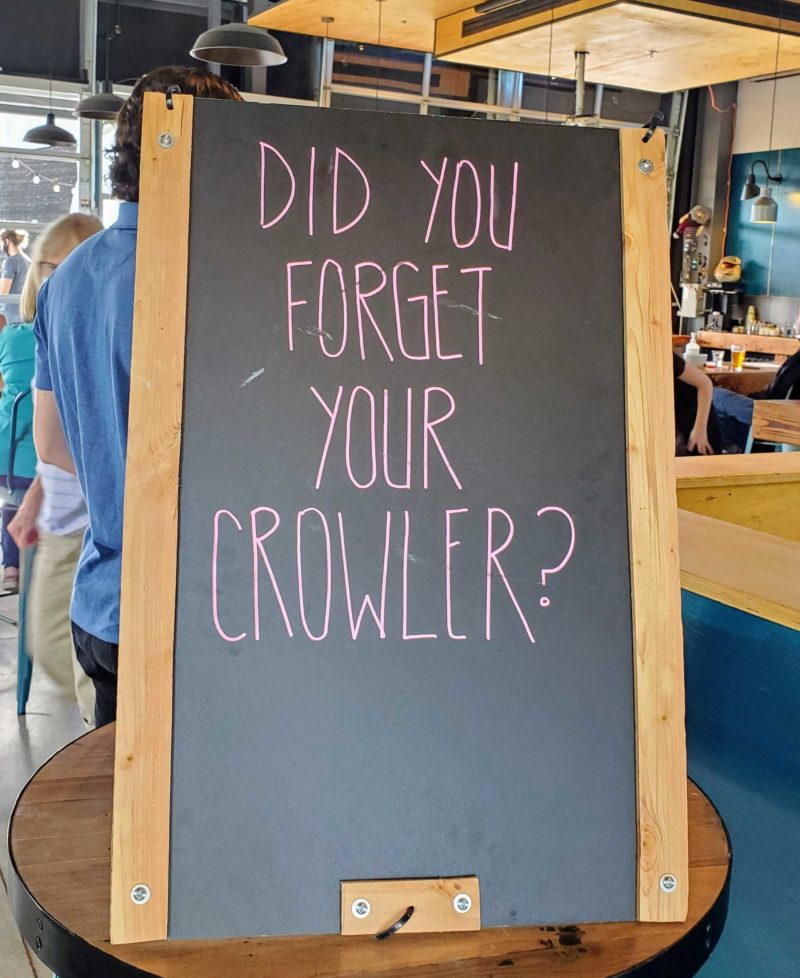 DID YOU
FORGET
YOUR
CROWLER?